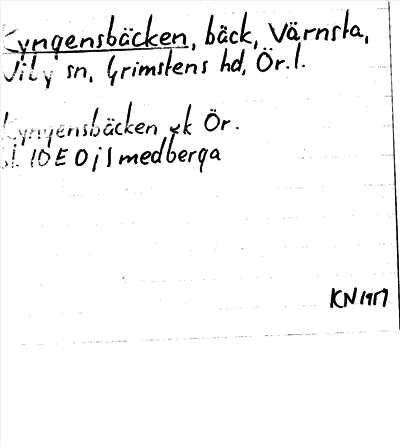 Kyngensbäcken, bäck, Värnsta,
Viby sn, Grimstens hd, Ör.l.
Kyngensbäcken ek Ör.
bl. 10E 0j Smedberga
KN 1957